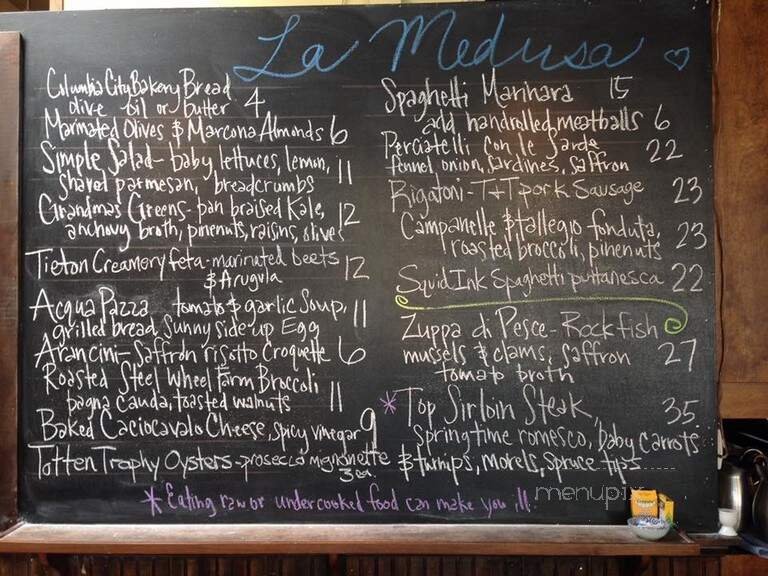 La Medusa
Columbia City Bakery Bread
olive oil or butter 4
Marinated Olives & Marcona Almonds 6
Simple Salad- baby lettuces, lemon,
shaved parmesan, breadcrumbs 11
Grandmas Greens- pan braised Kale,
anchovy broth, pinenuts, raisins, olives 12
Tieton Creamery feta- marinated beets
& Arugula 12
Acqua Pazza tomato & garlic Soup,
grilled bread, Sunny side up Egg 11
Arancini- saffron risotto Croquette 6
Roasted Steel Wheel Farm Broccoli
bagna cauda, toasted walnuts 11
Baked Caciocavalo Cheese, spicy vinegar 9
Totten Trophy Oysters- prosecco mignonette
3 ea
Spaghetti Marinara 15
add handrolled meatballs 6
Perciatelli con le Sarde
fennel, onion, sardines, saffron 22
Rigatoni- T+T pork Sausage 23
Campanelle & tallegio fonduta,
roasted broccoli, pinenuts 23
Squid Ink Spaghetti puttanesca 22
Zuppa di Pesce- Rockfish
mussels & clams, saffron 27
tomato broth
* Top Sirloin Steak, 35
Springtime romesco, baby carrots
& turnips, morels, spruce tips
* Eating raw or undercooked food can make you ill.
menupix